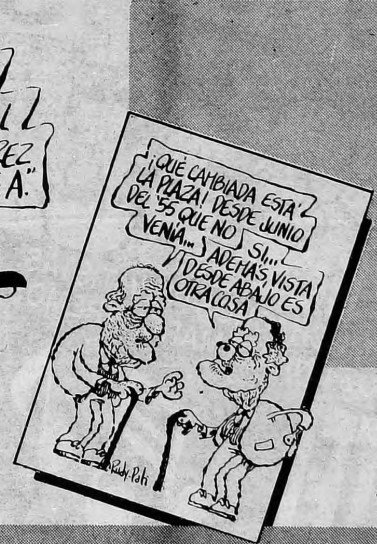 REZ
A."
¡QUÉ CAMBIADA ESTÁ
LA PLAZA! DESDE JUNIO
DEL '55 QUE NO
VENÍA...
SI...
ADEMÁS VISTA
DESDE ABAJO ES
OTRA COSA
Rudy-Pati